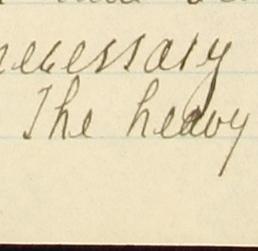 necessary
The heavy